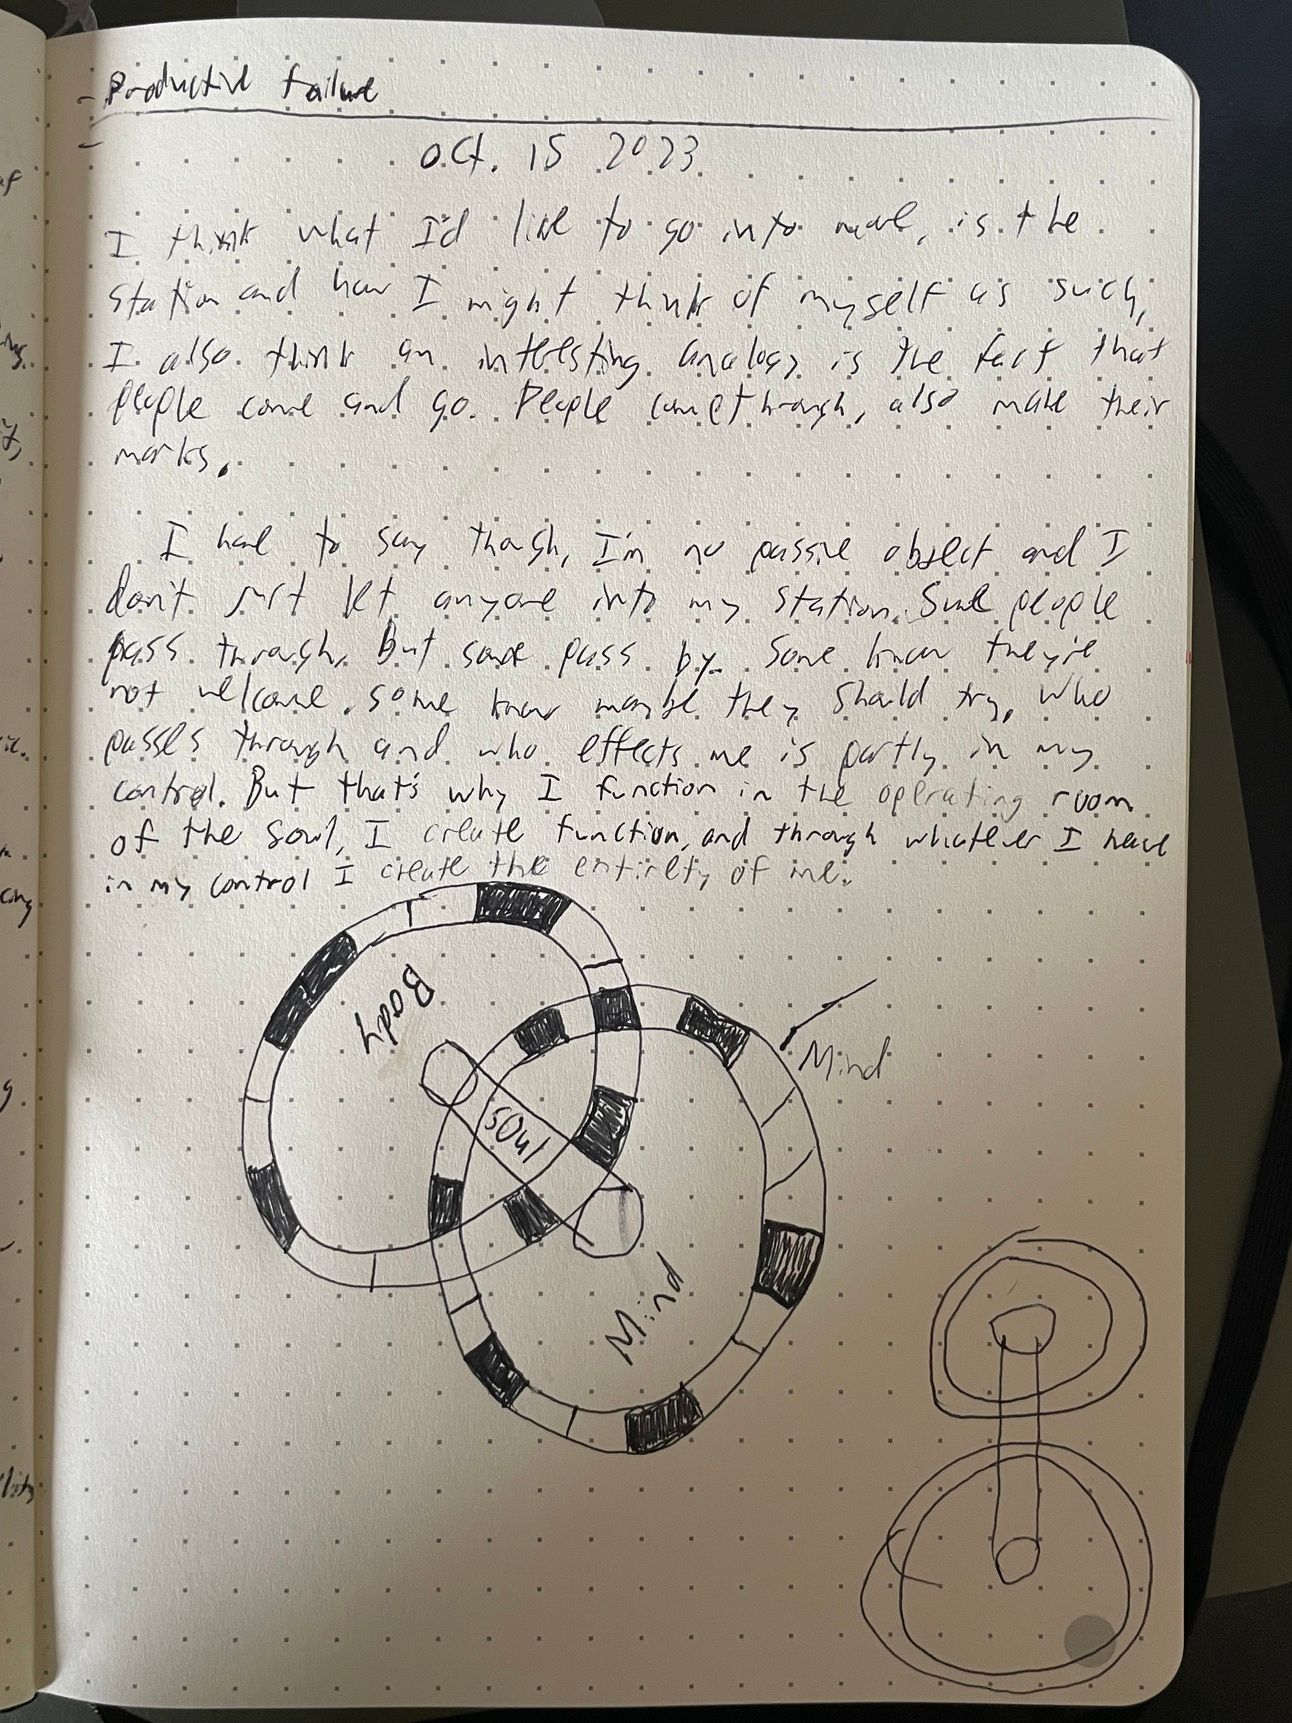 - Productive failure
Oct. 15 2023
I think what I'd like to go into more, is the
station and how I might think of myself as such,
I also think an interesting analogy is the fact that
people come and go. People come through, also make their
marks.
I have to say though, I'm no passive object and I
don't just let anyone into my station. Some people
pass through. But some pass by. Some know they're
not welcome. Some know maybe they should try, who
passes through and who effects me is partly in my
control. But that's why I function in the operating room
of the soul, I create function, and through whatever I have
in my control I create the entirety of me.
Body
Mind
Soul
Mind